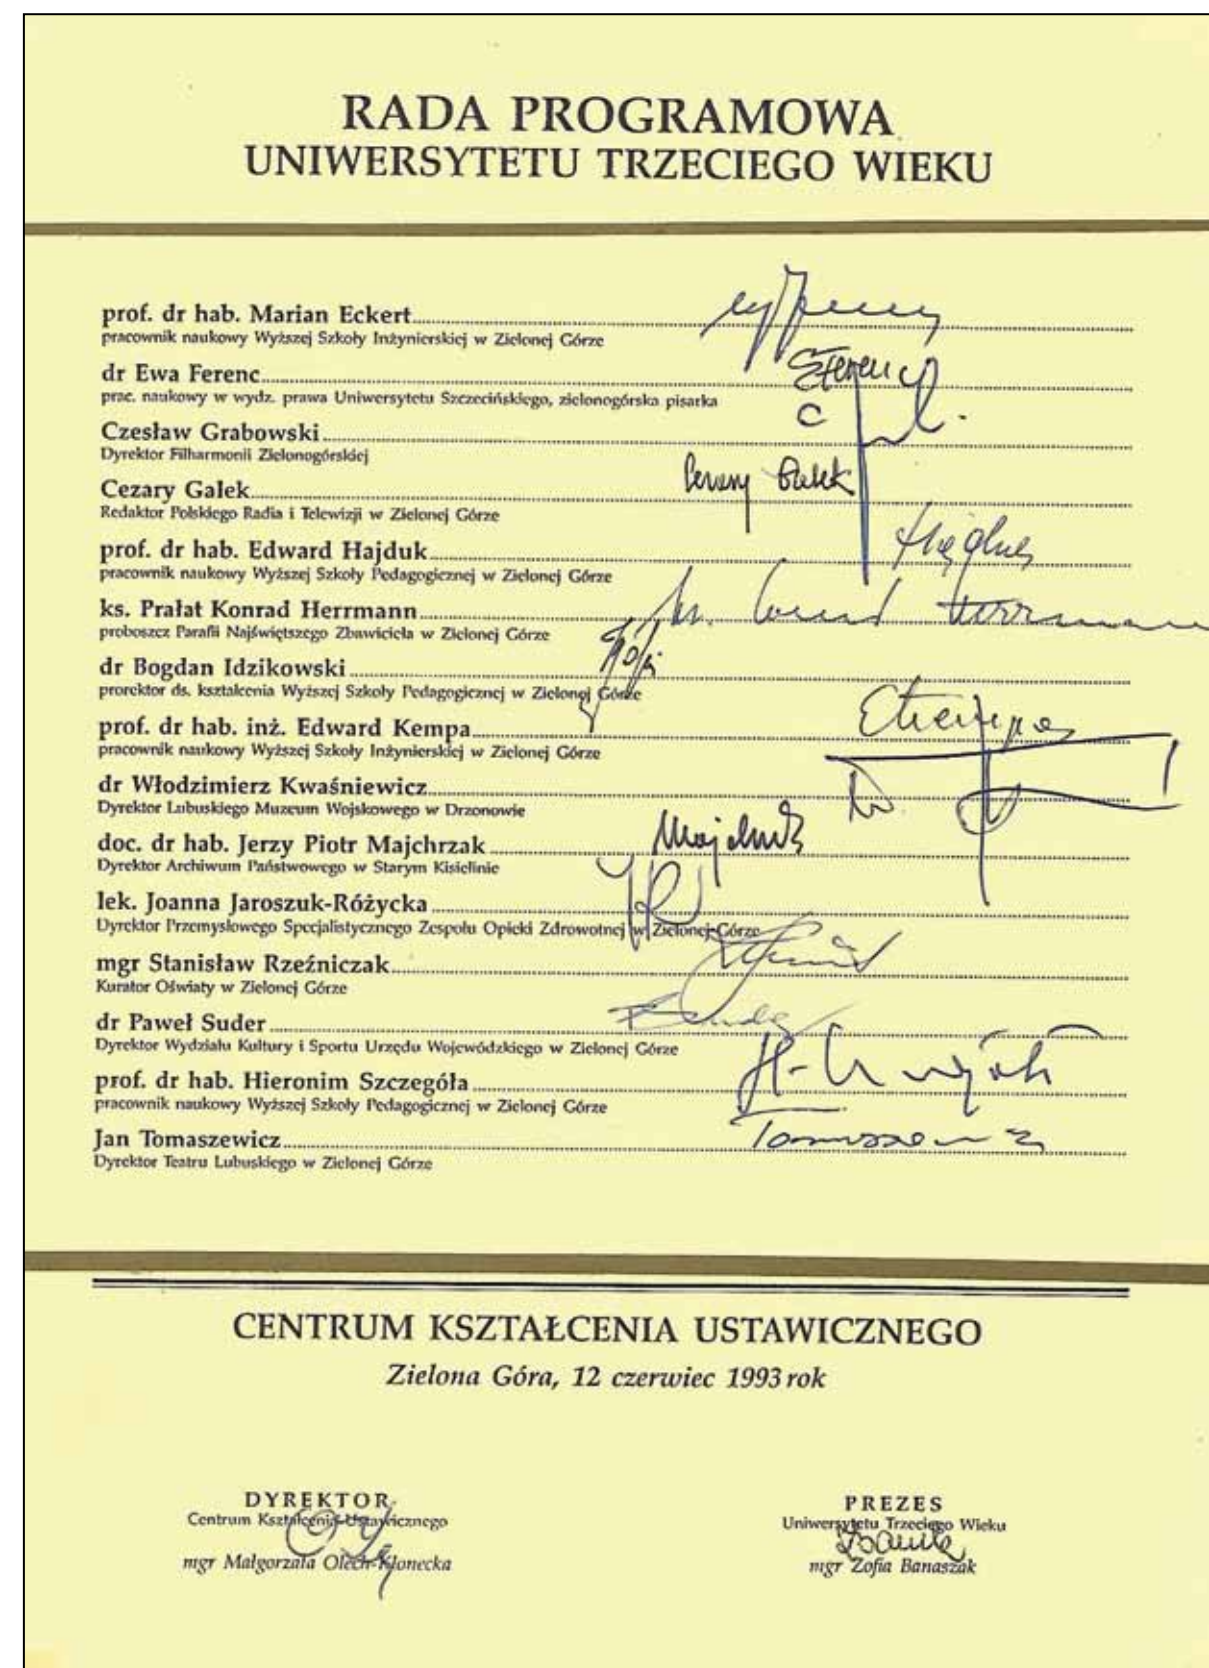 RADA PROGRAMOWA
UNIWERSYTETU TRZECIEGO WIEKU
prof. dr hab. Marian Eckert
pracownik naukowy Wyższej Szkoły Inżynierskiej w Zielonej Górze
dr Ewa Ferenc EFerenc
prac. naukowy w wydz. prawa Uniwersytetu Szczecińskiego, zielonogórska pisarka
Czesław Grabowski
Dyrektor Filharmonii Zielonogórskiej
Cezary Galek Cezary Galek
Redaktor Polskiego Radia i Telewizji w Zielonej Górze
prof. dr hab. Edward Hajduk
pracownik naukowy Wyższej Szkoły Pedagogicznej w Zielonej Górze
ks. Prałat Konrad Herrmann ks. Konrad Herrmann
proboszcz Parafii Najświętszego Zbawiciela w Zielonej Górze
dr Bogdan Idzikowski
prorektor ds. kształcenia Wyższej Szkoły Pedagogicznej w Zielonej Górze
prof. dr hab. inż. Edward Kempa EKempa
pracownik naukowy Wyższej Szkoły Inżynierskiej w Zielonej Górze
dr Włodzimierz Kwaśniewicz
Dyrektor Lubuskiego Muzeum Wojskowego w Drzonowie
doc. dr hab. Jerzy Piotr Majchrzak
Dyrektor Archiwum Państwowego w Starym Kisielinie
lek. Joanna Jaroszuk-Różycka
Dyrektor Przemysłowego Specjalistycznego Zespołu Opieki Zdrowotnej w Zielonej Górze
mgr Stanisław Rzeźniczak
Kurator Oświaty w Zielonej Górze
dr Paweł Suder
Dyrektor Wydziału Kultury i Sportu Urzędu Wojewódzkiego w Zielonej Górze
prof. dr hab. Hieronim Szczegóła
pracownik naukowy Wyższej Szkoły Pedagogicznej w Zielonej Górze
Jan Tomaszewicz Tomaszewicz
Dyrektor Teatru Lubuskiego w Zielonej Górze
CENTRUM KSZTAŁCENIA USTAWICZNEGO
Zielona Góra, 12 czerwiec 1993 rok
DYREKTOR
Centrum Kształcenia Ustawicznego
mgr Małgorzata Olech-Kłonecka
PREZES
Uniwersytetu Trzeciego Wieku
mgr Zofia Banaszak